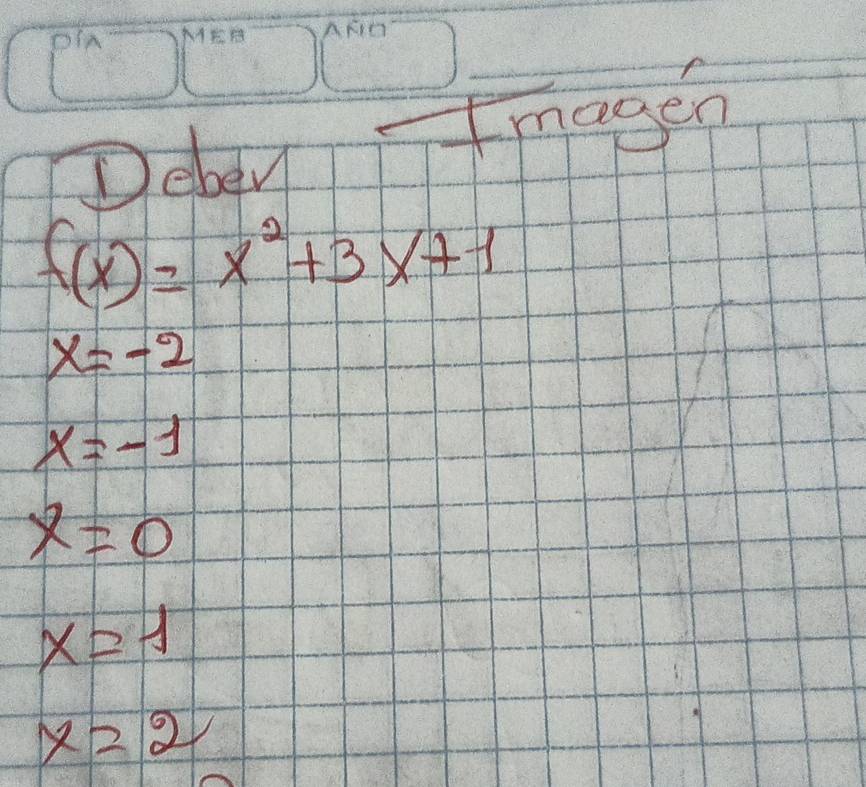 DÍA MES AÑO
Imagén
Deber
f(x) = x² + 3x + 1
x = -2
x = -1
x = 0
x = 1
x = 2